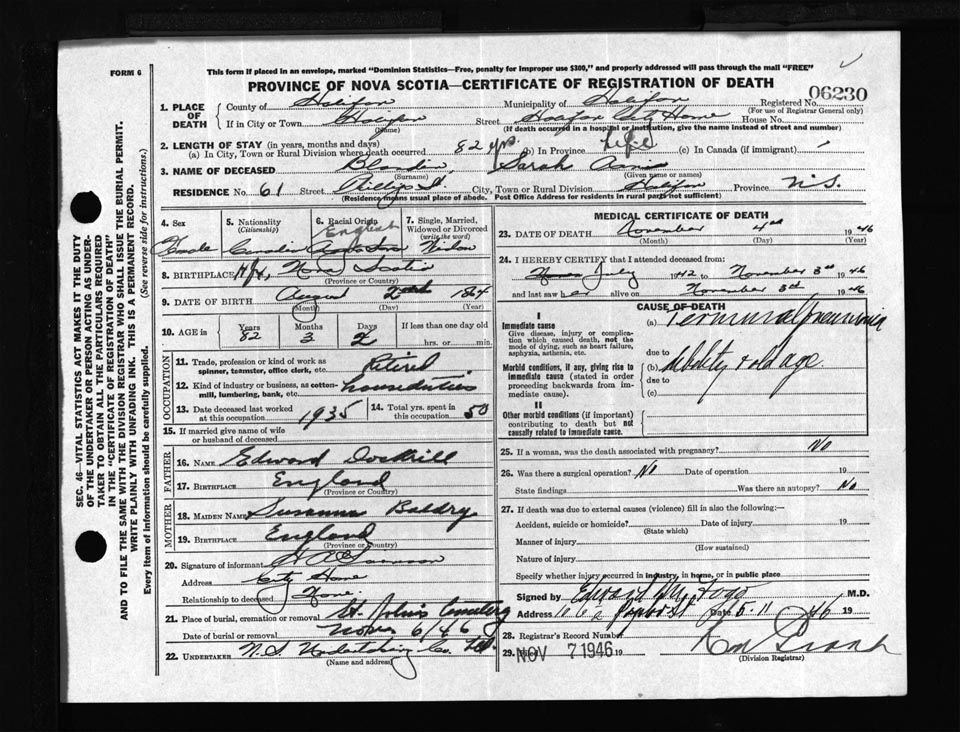 FORM 6
This form if placed in an envelope, marked "Dominion Statistics—Free, penalty for improper use $300," and properly addressed will pass through the mail "FREE"
PROVINCE OF NOVA SCOTIA—CERTIFICATE OF REGISTRATION OF DEATH
06230
1. PLACE OF DEATH { County of Halifax Municipality of Halifax Registered No.
(For use of Registrar General only)
If in City or Town Halifax Street Halifax City Home House No.
(Name) (If death occurred in a hospital or institution, give the name instead of street and number)
2. LENGTH OF STAY (in years, months and days)
(a) In City, Town or Rural Division where death occurred 82 yrs. (b) In Province Life (c) In Canada (if immigrant)
3. NAME OF DECEASED Sarah Annie
(Surname) (Given name or names)
RESIDENCE No. 61 Street Phillips St. City, Town or Rural Division Halifax Province N.S.
(Residence means usual place of abode. Post Office Address for residents in rural parts not sufficient)
4. Sex Female
5. Nationality (Citizenship) Canadian
6. Racial Origin English
7. Single, Married, Widowed or Divorced (write the word) Widow
8. BIRTHPLACE Hfx, Nova Scotia
(Province or Country)
9. DATE OF BIRTH August 2nd 1864
(Month) (Day) (Year)
10. AGE in { Years 82 Months 3 Days 2 If less than one day old hrs. or min.
OCCUPATION
11. Trade, profession or kind of work as spinner, teamster, office clerk, etc. Retired
12. Kind of industry or business, as cotton-mill, lumbering, bank, etc. house duties
13. Date deceased last worked at this occupation 1935
14. Total yrs. spent in this occupation 50
15. If married give name of wife or husband of deceased
FATHER
16. NAME Edward Dockrill
17. BIRTHPLACE England
(Province or Country)
MOTHER
18. MAIDEN NAME Susanna Baldry
19. BIRTHPLACE England
(Province or Country)
20. Signature of informant
Address City Home
Relationship to deceased None.
21. Place of burial, cremation or removal St. John's Cemetery
Date of burial or removal Nov. 6/46
22. UNDERTAKER N.S. Undertaking Co. Ltd.
(Name and address)
MEDICAL CERTIFICATE OF DEATH
23. DATE OF DEATH November 4th 1946
(Month) (Day) (Year)
24. I HEREBY CERTIFY that I attended deceased from:
July 1942 to November 3rd 1946
and last saw her alive on November 3rd 1946
CAUSE OF DEATH
I
Immediate cause
Give disease, injury or complication which caused death, not the mode of dying, such as heart failure, asphyxia, asthenia, etc.
(a) Terminal pneumonia
due to
Morbid conditions, if any, giving rise to immediate cause (stated in order proceeding backwards from immediate cause)
(b) debility & old age.
due to
(c)
II
Other morbid conditions (if important) contributing to death but not causally related to immediate cause.
25. If a woman, was the death associated with pregnancy? No
26. Was there a surgical operation? No Date of operation 19
State findings Was there an autopsy? No
27. If death was due to external causes (violence) fill in also the following:—
Accident, suicide or homicide? Date of injury 19
(State which)
Manner of injury
(How sustained)
Nature of injury
Specify whether injury occurred in industry, in home, or in public place
Signed by Edward M.D.
Address Date 5-11 46 19
28. Registrar's Record Number
29. NOV 7 1946 19
(Division Registrar)
SEC. 46—VITAL STATISTICS ACT MAKES IT THE DUTY
OF THE UNDERTAKER OR PERSON ACTING AS UNDER-
TAKER TO OBTAIN ALL THE PARTICULARS REQUIRED
IN THE "CERTIFICATE OF REGISTRATION OF DEATH"
AND TO FILE THE SAME WITH THE DIVISION REGISTRAR WHO SHALL ISSUE THE BURIAL PERMIT.
WRITE PLAINLY WITH UNFADING INK. THIS IS A PERMANENT RECORD.
Every item of information should be carefully supplied. (See reverse side for instructions.)